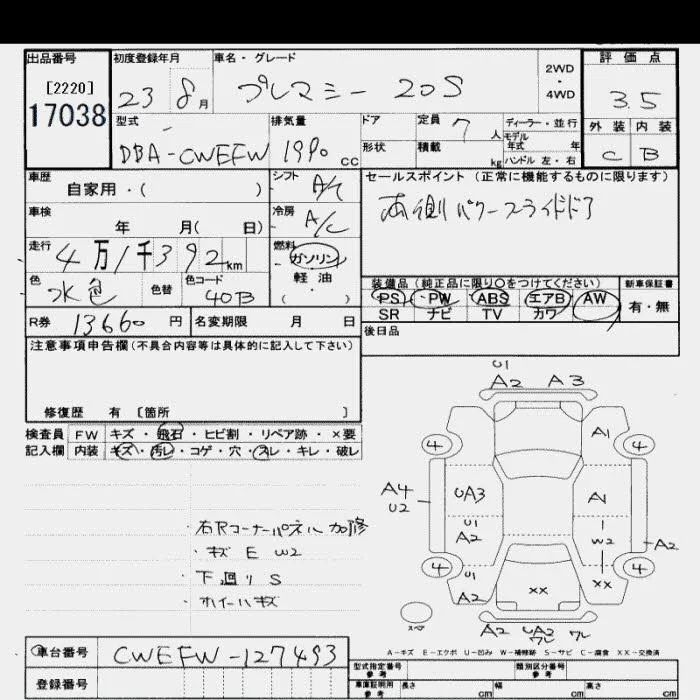 出品番号 初度登録年月 車名・グレード 2WD・4WD 評価点
[2220] 23 8月 プレマシー 20S 3.5
17038 型式 排気量 ドア 定員 7人 ディーラー・並行 外装 内装
DBA-CWEFW 1990cc 形状 積載 kg モデル年式 年 ハンドル 左・右 C B
車歴 自家用・( ) シフト A/C セールスポイント (正常に機能するものに限ります)
車検 年 月( 日) 冷房 A/C 両側パワースライドドア
走行 4万1千392km 燃料 ガソリン 軽油 ( )
色 水色 色替 色コード 40B 装備品 (純正品に限り○をつけてください) 新車保証書
PS・PW ABS エアB AW 有・無
SR ナビ TV カワ
R券 13660円 名変期限 月 日 後日品
注意事項申告欄(不具合内容等は具体的に記入して下さい)
修復歴 有 [箇所 ]
検査員 FW キズ・飛石・ヒビ割・リペア跡・×要
記入欄 内装 キズ・汚レ・コゲ・穴・スレ・キレ・破レ
U1
A2 A3
4 A1 4
A4 UA3 A1
U2
U1
A2 W2 A2
4 U1 4
A2 XX XX
スペア A2 UA3 ワレ
ワレ
・右Rコーナーパネル加修
・キズ E W2
・下廻り S
・ホイールキズ
A-キズ E-エクボ U-凹み W-補修跡 S-サビ C-腐食 XX-交換済
車台番号 CWEFW-127493
登録番号
型式指定番号 参考 類別区分番号 参考
車庫証明用 参考 長さ cm 幅 cm 高さ cm